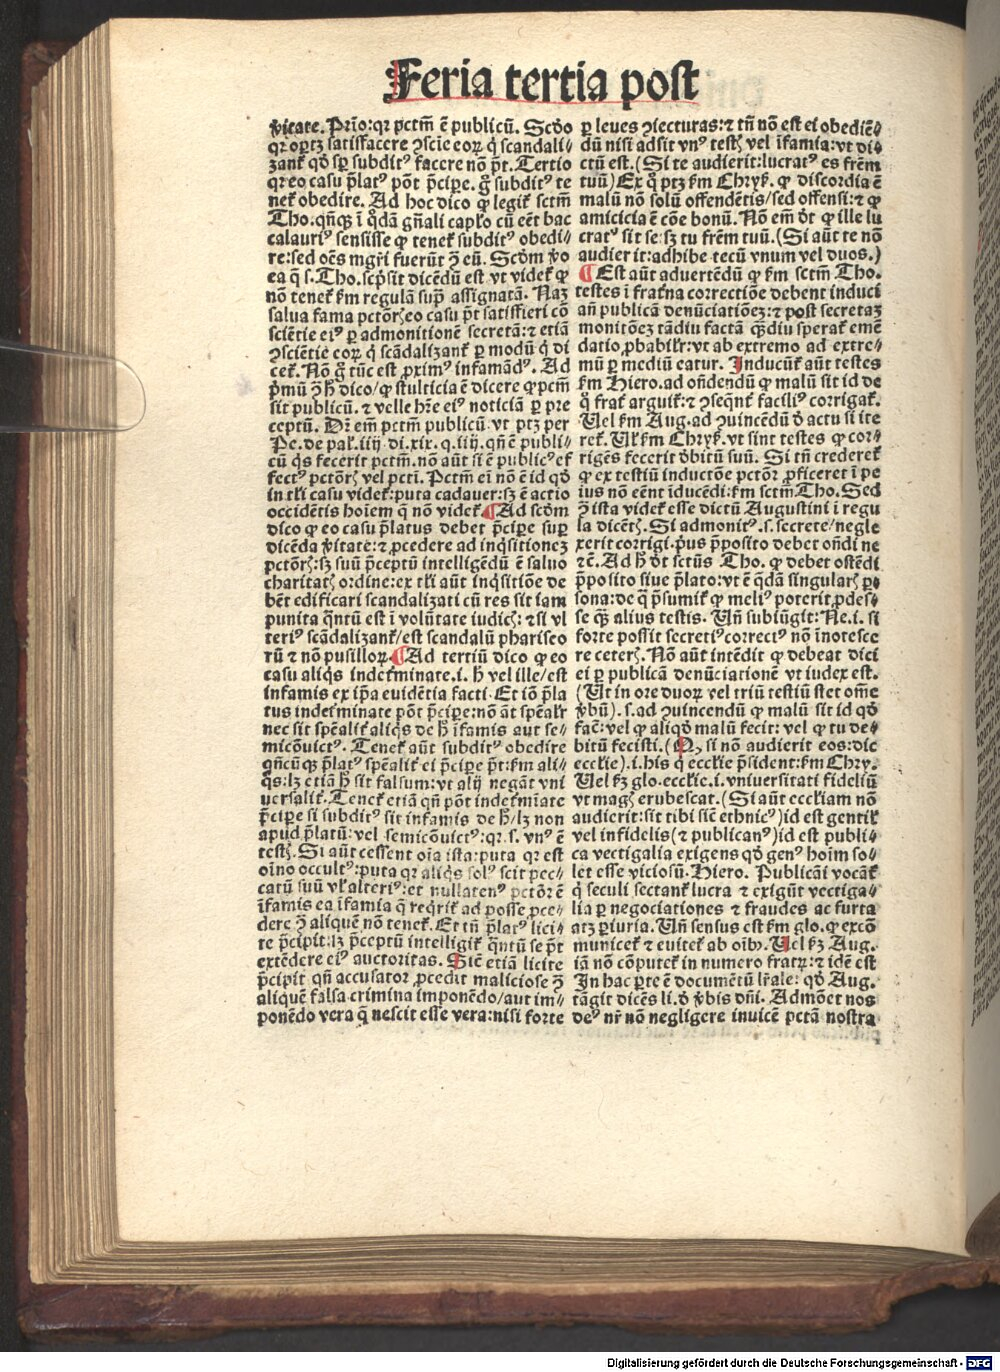 Feria tertia post
v̄itate. Prīo: qꝛ pctm̄ ē publicū. Scd̄o
qꝛ oprtꝫ satisfacere ꝯscīe eoꝝ q̇ scandali⸗
zanť qd̄ sꝑ subditꝰ facere nō p̄t. Tertio
qꝛ eo casu p̄latꝰ pōt p̄cipe. g̊ subditꝰ te
neť obedire. Ad hoc dico ꝙ legiť sctm̄
Tho. qn̄qꝫ ī q̊dā gn̄ali caplo cū eēt bac
calauriꝰ sensisse ꝙ teneť subditꝰ obedi⸗
re: sed oēs mgr̄i fuerūt ꝯ̄ eū. Scd̄m v̄o
ea q̄ s. Tho. scp̄sit dicēdū est vt videť ꝙ
nō teneť ẜm regulā supͣ assignatā. Naꝫ
salua fama pctōrꝭ eo casu p̄t satisfieri cō
sciētie eiꝰ ꝑ admonitionē secretā: ⁊ etiā
ꝯsciētie eoꝝ q̇ scādalizanť ꝑ modū q̇ di
ceť. Nō g̊ tūc est ꝓximꝰ infamādꝰ. Ad
p̄mū ꝯ̄ h̄ dico/ ꝙ stulticia ē dicere ꝙ pctm̄
sit publicū. ⁊ velle hr̄e eiꝰ noticiā ꝑ pre
ceptū. Dr̄ em̄ pctm̄ publicū vt ptꝫ per
Pe. de pal. iiij di. xix. q. iiij. qn̄ ē publi⸗
cū q̇s fecerit pctm̄. nō aūt si ē publicꝰ ef
fectꝰ pctōrꝭ vel pcti. Pctm̄ ei nō ē id qd̄
in tli casu videť: puta cadauer: sꝫ ē actio
occidētis hoīem q̄ nō videť. ¶ Ad scd̄m
dico ꝙ eo casu p̄latus debet p̄cipe suꝑ
dicēda v̄itate: ⁊ ꝓcedere ad inq̇sitioneꝫ
pctōrꝭ: sꝫ suū p̄ceptū intelligēdū ē saluo
charitatꝭ ordine: ex tli aūt inq̇sitiōe de
bēt edificari scandalizati cū res sit iam
punita q̄ntū est ī volūtate iudicꝭ: ⁊ si vl
teriꝰ scādalizanť/ est scandalū phariseo
rū ⁊ nō pusilloꝝ. ¶ Ad tertiū dico ꝙ eo
casu aliq̇s indeťminate .i. h̄ vel ille/ est
infamis ex ip̄a euidētia facti. Et iō p̄la
tus indeťminate pōt p̄cipe: nō āt spēalr̄
nec sit spēaliť aliq̇s de h̄ īfamis aut se⸗
micōuictꝰ. Teneť aūt subditꝰ obedire
qn̄cūqꝫ p̄latꝰ spēaliť ei p̄cipe p̄t: ẜm ali⸗
q̇s: lꝫ etiā h̄ sit falsum: vt alij negāt vni
uersaliť. Teneť etiā qn̄ pōt indeťmīate
p̄cipe si subditꝰ sit infamis de h̄/ lꝫ non
apud p̄latū: vel semicōuictꝰ: qꝛ .s. vnꝰ ē
testꝭ. Si aūt cessent oīa ista: puta qꝛ est
oīno occultꝰ: puta qꝛ aliq̇s solꝰ scit pec⸗
catū suū vl̄ alteriꝰ: et nullatenꝰ pctōr ē
īfamis ea īfamia q̄ req̇riť ad posse ꝓce⸗
dere ꝯ̄ aliquē nō teneť. Et tn̄ p̄latꝰ lici⸗
te p̄cipit: lꝫ p̄ceptū intelligiť q̄ntū se p̄t
extēdere eiꝰ auctoritas. Sicē etiā licite
p̄cipit qn̄ accusator ꝓcedit maliciose ꝯ̄
aliquē falsa crimina imponēdo/ aut im⸗
ponēdo vera q̄ nescit esse vera: nisi forte
ꝑ leues ꝯiecturas: ⁊ tn̄ nō est ei obediē⸗
dū nisi adsit vnꝰ testꝭ vel īfamia: vt di⸗
ctū est. (Si te audierit: lucratꝰ es frēm
tuū) Ex q̊ ptꝫ ẜm Chryẜ. ꝙ discordia ē
malū nō solū offendētis/ sed offensi: ⁊ ꝙ
amicicia ē cōe bonū. Nō em̄ dr̄ ꝙ ille lu
cratꝰ sit se: sꝫ tu frēm tuū. (Si aūt te nō
audierit: adhibe tecū vnum vel duos.)
¶ Est aūt aduertēdū ꝙ ẜm sctm̄ Tho.
testes ī frat̄na correctiōe debent induci
an̄ publicā denūciatiōeꝫ: ⁊ post secretaꝫ
monitōeꝫ tādiu factā q̄ꝫdiu sperať emē
datio ꝓbabilr̄: vt ab extremo ad extre⸗
mū ꝑ mediū eatur. Inducunť aūt testes
ẜm Hiero. ad on̄dendū ꝙ malū sit id de
q̊ frať arguiť: ⁊ ꝯseqn̄ť faciliꝰ corrigať.
Uel ẜm Aug. ad ꝯuincēdū d̄ actu si ite
reť. Ul̄ ẜm Chryẜ. vt sint testes ꝙ cor⸗
rigēs fecerit d̄bitū suū. Si tn̄ credereť
ꝙ ex testiū inductōe pctōr ꝓficeret ī pe
ius nō eēnt īducēdi: ẜm sctm̄ Tho. Sed
ꝯ̄ ista videť esse dictū Augustini ī regu
la dicētꝭ. Si admonitꝰ .s. secrete/ negle
xerit corrigi. p̄us p̄posito debet on̄di ne
⁊c̄. Ad h̄ dr̄ sctus Tho. ꝙ debet ostēdi
p̄posito siue p̄lato: vt ē q̄dā singularꝭ ꝑ⸗
sona: de q̄ p̄sumiť ꝙ meliꝰ poterit ꝓdes⸗
se qͣꝫ alius testis. Un̄ subiūgit: Ne .i. si
forte possit secretiꝰ correctꝰ nō īnotesce
re ceterꝭ. Nō aūt intēdit ꝙ debeat dici
ei ꝑ publicā denūciationē vt iudex est.
(Ut in ore duoꝝ vel triū testiū stet om̄e
v̄bū). s. ad ꝯuincendū ꝙ malū sit id qd̄
fac̄: vel ꝙ aliqd̄ malū fecit: vel ꝙ tu de⸗
bitū fecisti. (Qꝫ si nō audierit eos: dic
ecclie) .i. his q̇ ecclie p̄sident: ẜm Chry.
Uel ẜꝫ glo. ecclie .i. vniuersitati fideliū
vt magꝭ erubescat. (Si aūt eccliam nō
audierit: sit tibi sic̄ ethnicꝰ) id est gentiť
vel infidelis (⁊ publicanꝰ) id est publi⸗
ca vectigalia exigens qd̄ genꝰ hoīm so⸗
let esse viciosū. Hiero. Publicani vocāť
q̇ seculi sectanť lucra ⁊ exigūt vectiga⸗
lia ꝑ negociationes ⁊ fraudes ac furta
atꝫ ꝑiuria. Un̄ sensus est ẜm glo. ꝙ excō
municeť ⁊ euiteť ab oībꝫ. Uel ẜꝫ Aug.
iā nō cōputeť in numero fratꝝ: ⁊ idē est
In hac ꝑte ē documētū lr̄ale: qd̄ Aug.
tāgit dicēs li. d̄ v̄bis dn̄i. Admōet nos
deꝰ nr̄ nō negligere inuicē pctā nostra
Digitalisierung gefördert durch die Deutsche Forschungsgemeinschaft - DFG